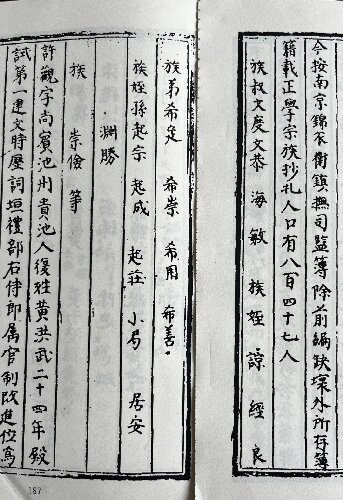 今按南京錦衣衛鎮撫司監簿除前編缺壞外所存簿
籍載正學宗族抄扎人口有八百四十七人
族叔文慶文恭 海 敏 族姪 諒 經 良
族弟希 希崇 希用 希善
族姪孫起宗 起成 起莊 小 居安
淵勝
族 崇儉等
許觀字尚賓池州貴池人復姓黃洪武二十四年殿
試第一建文時歷詞垣禮部右侍郎属官制改進位爲
187